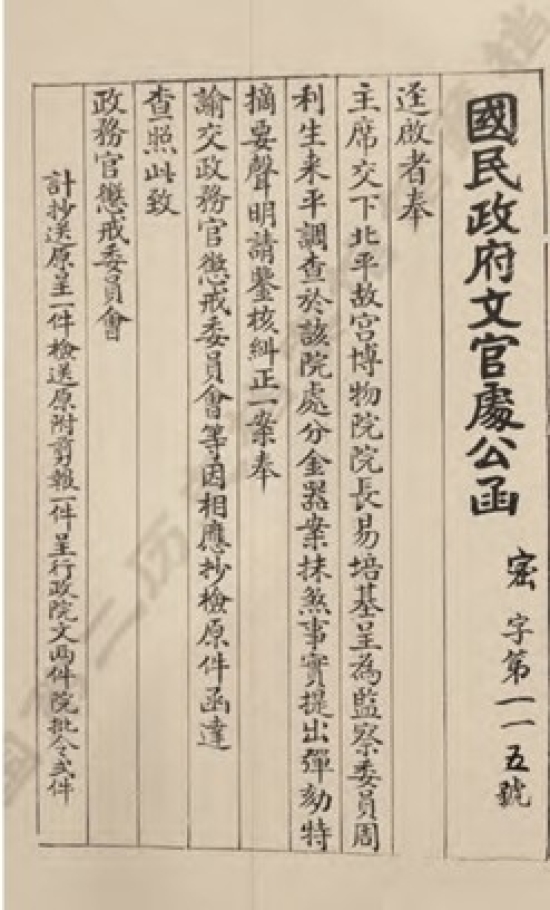 國民政府文官處公函
密字第一一五號
逕啟者奉
主席交下北平故宮博物院院長易培基呈為監察委員周
利生来平調查於該院處分金器案抹煞事實提出彈劾特
摘要聲明請鑒核糾正一案奉
諭交政務官懲戒委員會等因相應抄檢原件函達
查照此致
政務官懲戒委員會
計抄送原呈一件檢送原附剪報一件呈行政院文兩件院批令弍件